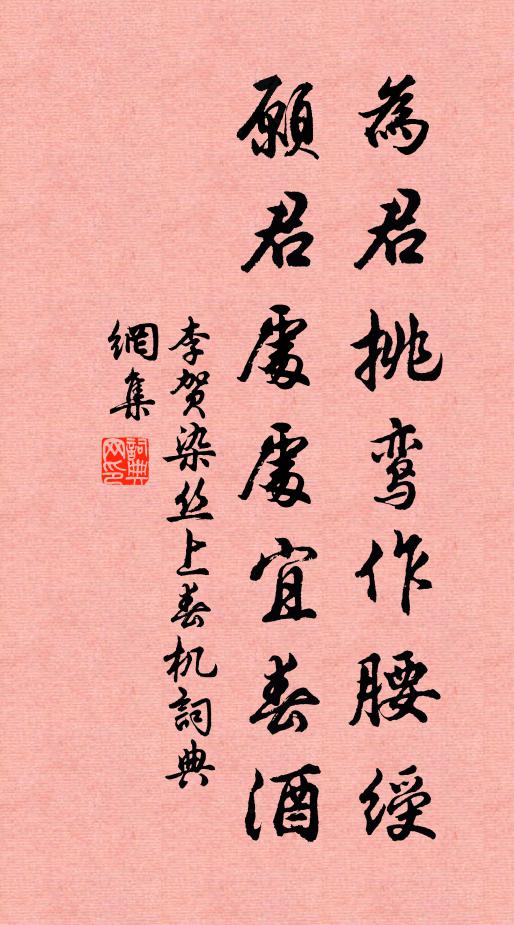 為君挑鸾作腰綬
願君處處宜春酒
李贺染丝上春机詞典
網集
詞典网印